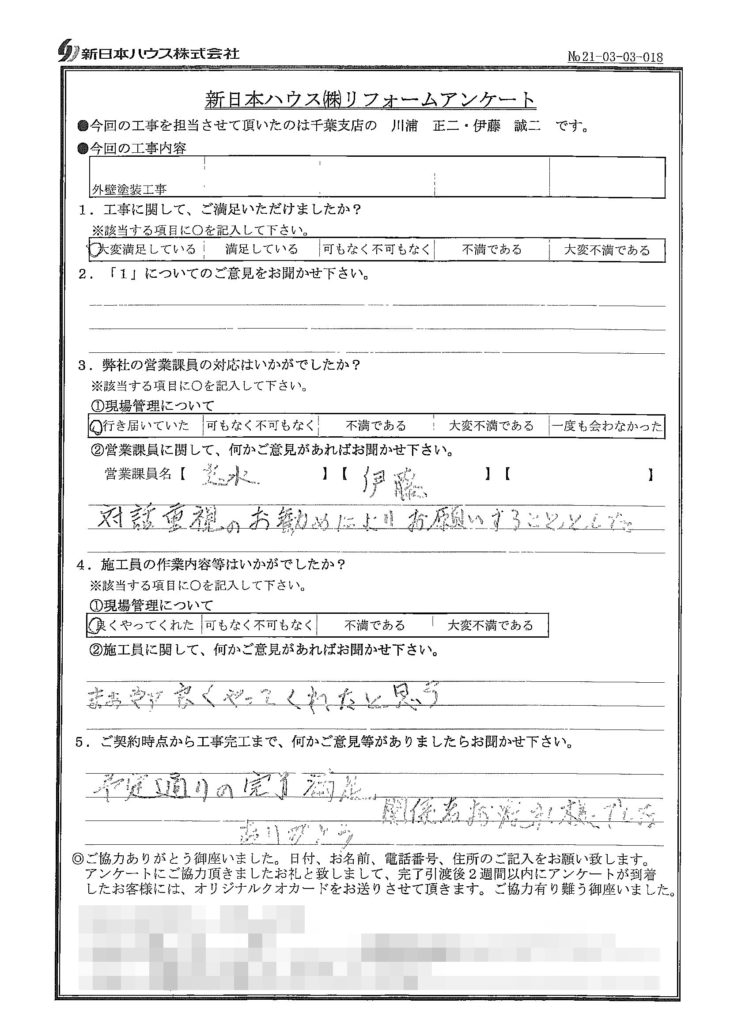 新日本ハウス株式会社
№21-03-03-018
新日本ハウス㈱リフォームアンケート
●今回の工事を担当させて頂いたのは千葉支店の 川浦 正二・伊藤 誠二 です。
●今回の工事内容
外壁塗装工事
1．工事に関して、ご満足いただけましたか？
※該当する項目に○を記入して下さい。
大変満足している 満足している 可もなく不可もなく 不満である 大変不満である
2．「1」についてのご意見をお聞かせ下さい。
3．弊社の営業課員の対応はいかがでしたか？
※該当する項目に○を記入して下さい。
①現場管理について
行き届いていた 可もなく不可もなく 不満である 大変不満である 一度も会わなかった
②営業課員に関して、何かご意見があればお聞かせ下さい。
営業課員名【 】【 伊藤 】【 】
対話重視のお勧めによりお願いすることとした。
4．施工員の作業内容等はいかがでしたか？
※該当する項目に○を記入して下さい。
①現場管理について
良くやってくれた 可もなく不可もなく 不満である 大変不満である
②施工員に関して、何かご意見があればお聞かせ下さい。
良くやってくれたと思う
5．ご契約時点から工事完工まで、何かご意見等がありましたらお聞かせ下さい。
予定通りの完了満足、
関係者お疲れ様でした
ありがとう
◎ご協力ありがとう御座いました。日付、お名前、電話番号、住所のご記入をお願い致します。
アンケートにご協力頂きましたお礼と致しまして、完了引渡後2週間以内にアンケートが到着
したお客様には、オリジナルクオカードをお送りさせて頂きます。ご協力有り難う御座いました。